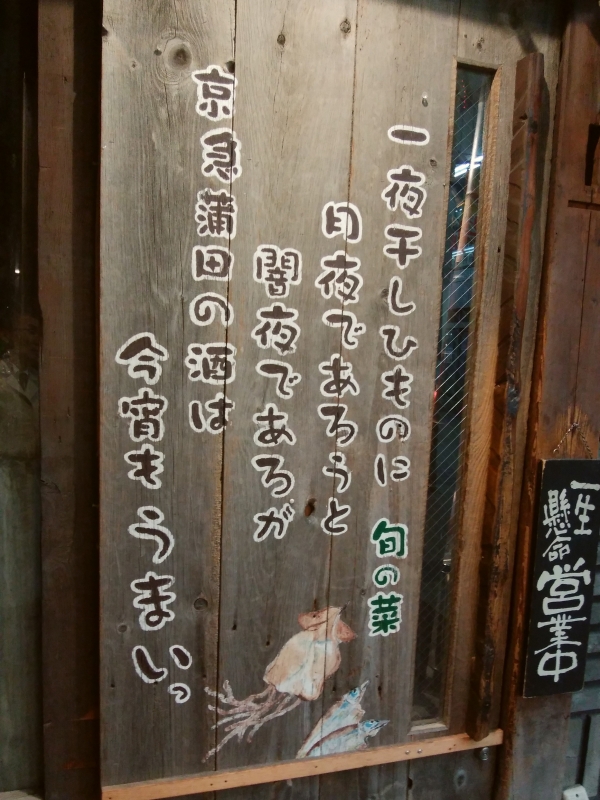 一夜干しひものに 旬の菜
月夜であろうと
闇夜であろが
京急蒲田の酒は
今宵もうまいっ
一生
懸命
営業中